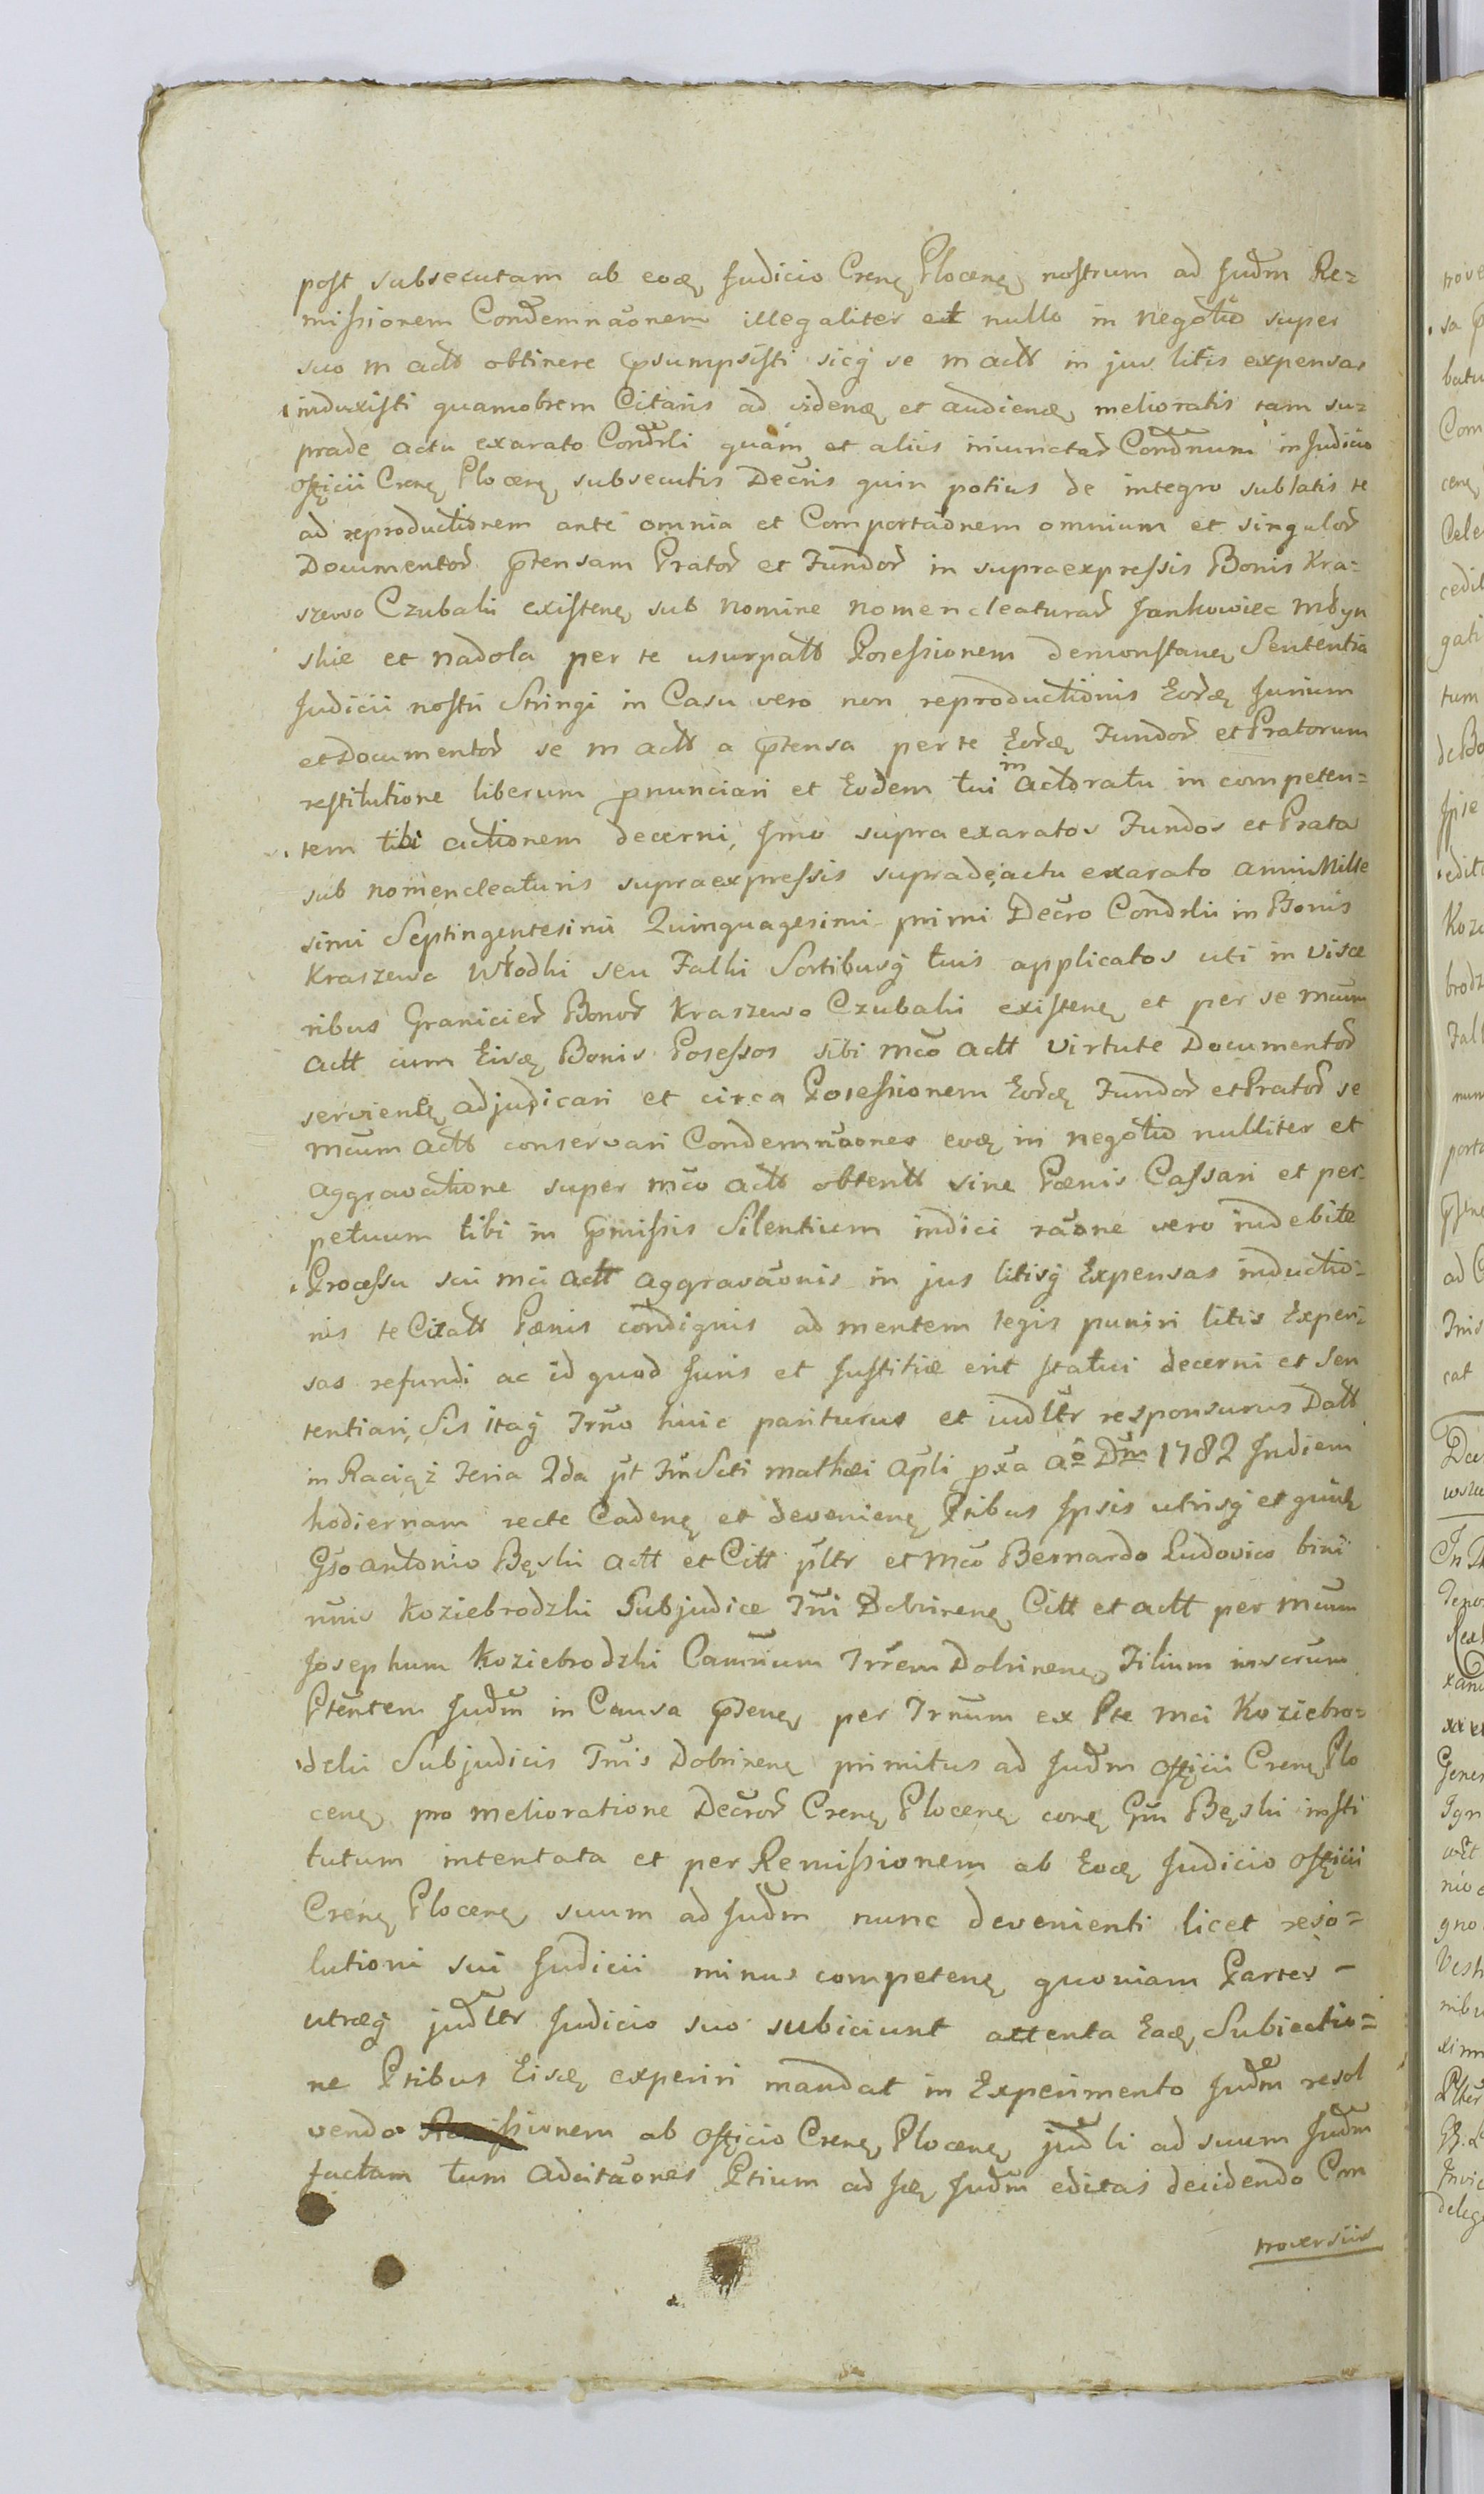 post subsecutam ab eodę Judicio Crenę Plocenę nostrum ad Judm̃ Re=
missionem Condemnãonem illegaliter et nullo in negotio super
suo m actt obtinere p̃sumpsisti sicq́ se m actt in jus litis expensas
induxisti quamobrem Citaris ad videnđ et audienđ melioratis tam su=
prade actu exarato Condrli quám et aliis iniunctar̃ Condnum̃ in Judicio
Officii Crenę Plocenę subsecutis Decris quin potius de integro sublatis te
ad reproductionem ante omnia et Comportãonem omnium et singulor̃
Documentor̃ p̃tensam Prator̃ et Fundor̃ in supraexpressis Bonis Kra=
szewo Czubaki existenę sub nomine nomencleaturar̃ Jankowiec Młyn
skie et nadola per te usurpatt Posessionem demonstanę Sententia
Judicii nostri Stringi in Casu vero non reproductionis Eordę Jurium
et Documentor̃ se m actt a p̃tensa per te Eordę Fundor̃ et Pratorum
restitutione liberum p̃nunciari et Eodem tui in Actoratu in competen=
tem tibi actionem decerni, Jmo supra exaratos Fundos et Prata
sub nomencleaturis supraexpressis supradeactu exarato anni Mille
simi Septingentesimi Quinquagesimi primi Decro Condrlii in Bonis
Kraszewo Włodki seu Falki Sortibusq́ tuis applicatos uti in visce
ribus Granicier̃ Bonor̃ Kraszewo Czubaki existenę et per se mcum
actt cum Eisdę Bonis Posessos sibi mco actt virtute Documentor̃
servientę adjudicari et circa Posessionem Eordę Fundor̃ et Prator̃ se
mcum actt conservari Condemnãones eodę in negotio nulliter et
aggravatione super mco actt obtentt sine Pœnis Cassari et per=
petuum tibi in p̃missis Silentium indici rãone vero indebite
Processu sui mci actt aggravãonis in jus litisq́ Expensas inductio=
nis te Citatt Pœnis condignis ad mentem legis puniri litis Expen=
sas refundi ac id quod Juris et Justitiæ erit statui decerni et Sen
tentiari, Sis itaq́ Trno huic pariturus et iudltr responsurus Datt
in Raciąż Feria 2da p̃t Fm̃ Scti mathæi Apli p̃xa Aõ Dm̃ 1782 Indiem
hodiernam recte Cadenę et devenienę Ptibus Ipsis utrisq́ et quidę
Gso antonio Bęski actt et Citt p̃ltr et mco Bernardo Ludovico bini
nuio Koziebrodzki Subjudice Tr̃i Dobrinenę Citt et actt per mcum
Josephum Koziebrodzki Camrium Trr̃em Dobrinenę Filium suscrum
Ptentem Judm̃ in Causa p̃senę per Trnum ex Pte mci Koziebro=
dzki Subjudicis Tr̃is Dobrinenę primitus ad Judm̃ Officii Crenę Plo
cenę pro melioratione Decror̃ Crenę Plocenę conę Gm̃ Bęski insti
tutum intentata et per Remissionem ab Eodę Judicio Officii
Crenę Plocenę suum ad Judm̃ nunc devenienti licet reso=
lutioni sui Judicii minus competenę quoniam Partes -
utræq́ judltr Judicio suo subiciunt attenta Eadę Subiectio=
ne Ptibus Eisdę experiri mandat in Experimento Judm̃ resol
vendo Remissionem ab Officio Crenę Plocenę judli ad suum Judm̃
factam tum Adcitãones Ptium ad Id̃ę Judm̃ editas decidendo Con
troversiis